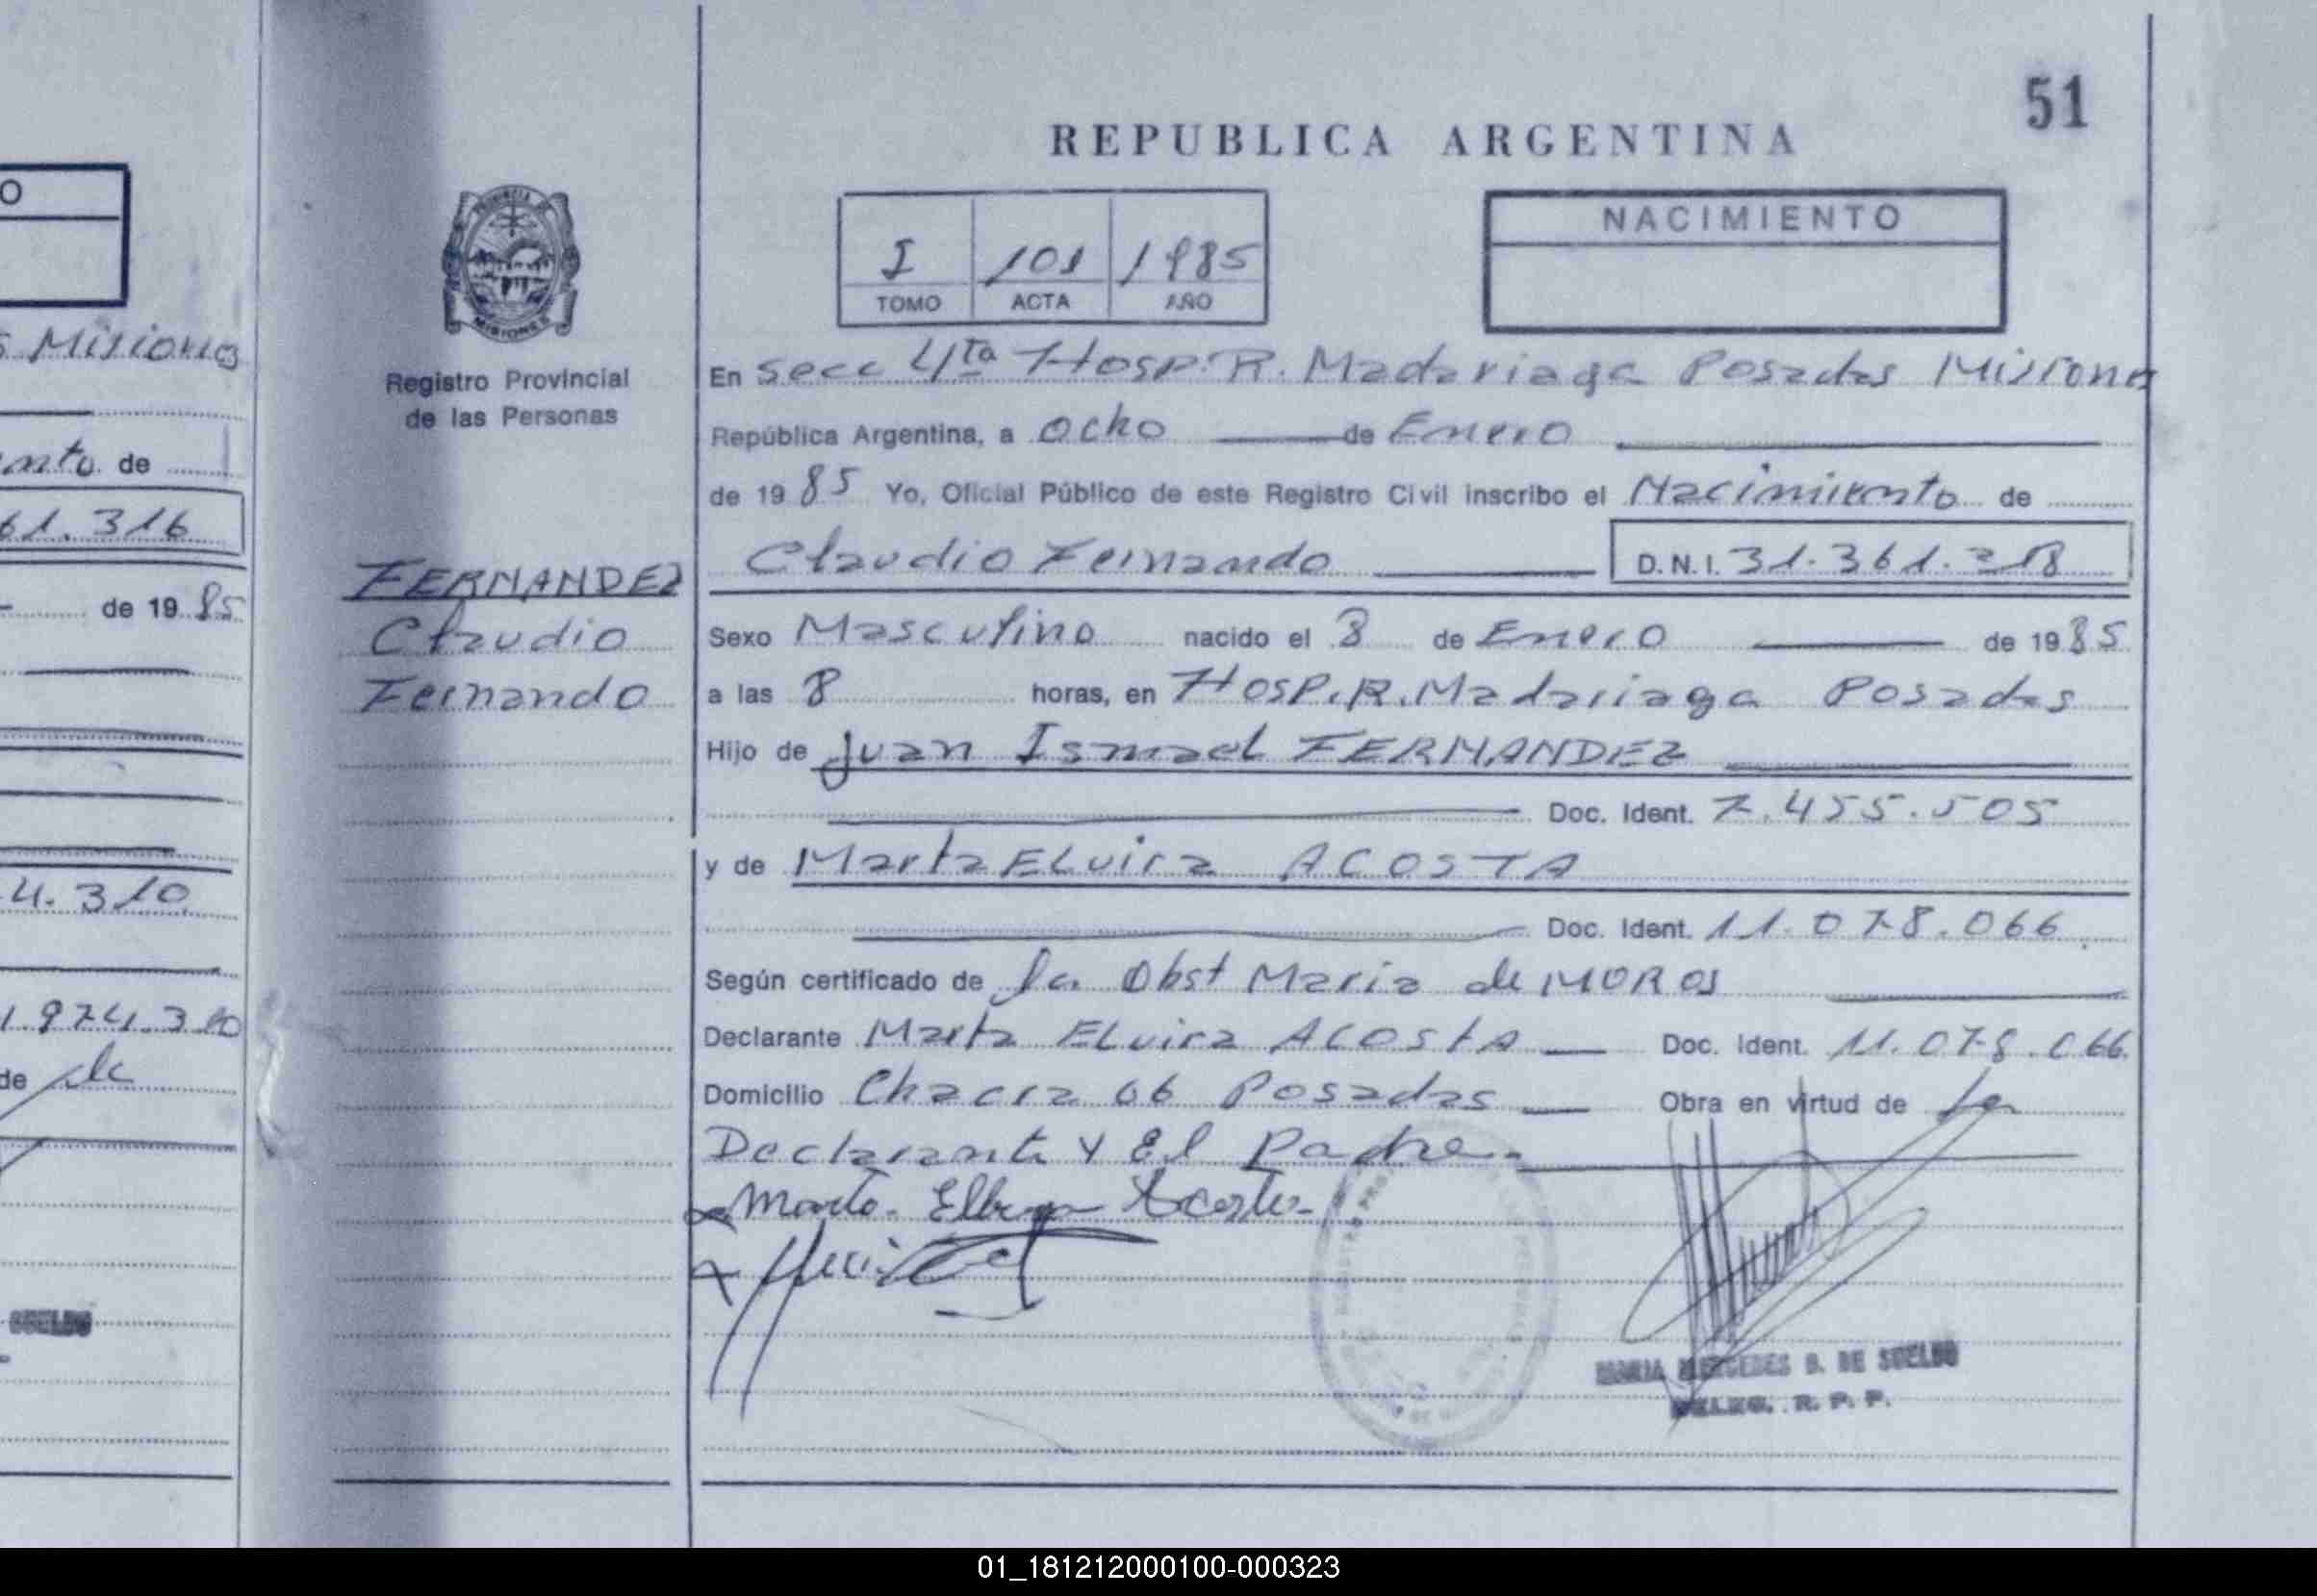 51
REPUBLICA ARGENTINA
O
NACIMIENTO
I 101 1985
TOMO ACTA AÑO
MISIONES
Registro Provincial
de las Personas
Misiones
En Secc 4ta Hosp. R. Madariaga Posadas Misiones
República Argentina, a Ocho de Enero
nto de
de 1985 Yo, Oficial Público de este Registro Civil inscribo el Nacimiento de
61.316
Claudio Fernando D.N.I. 31.361.318
FERNANDEZ
Claudio
Fernando
de 19 85
Sexo Masculino nacido el 8 de Enero de 1985
a las 8 horas, en Hosp. R. Madariaga Posadas
Hijo de Juan Ismael FERNANDEZ
Doc. Ident. 7.455.505
y de Marta ELvira ACOSTA
4.310
Doc. Ident. 11.078.066
Según certificado de la Obst Maria de MOROS
1.974.310
Declarante Marta ELvira ACOSTA Doc. Ident. 11.078.066
de la
Domicilio Chacra 66 Posadas Obra en virtud de la
Declarante y El Padre.
Marta Acosta
SUELDO
MARIA MERCEDES B. DE SUELDO
DELEG. R. P. P.
01_181212000100-000323